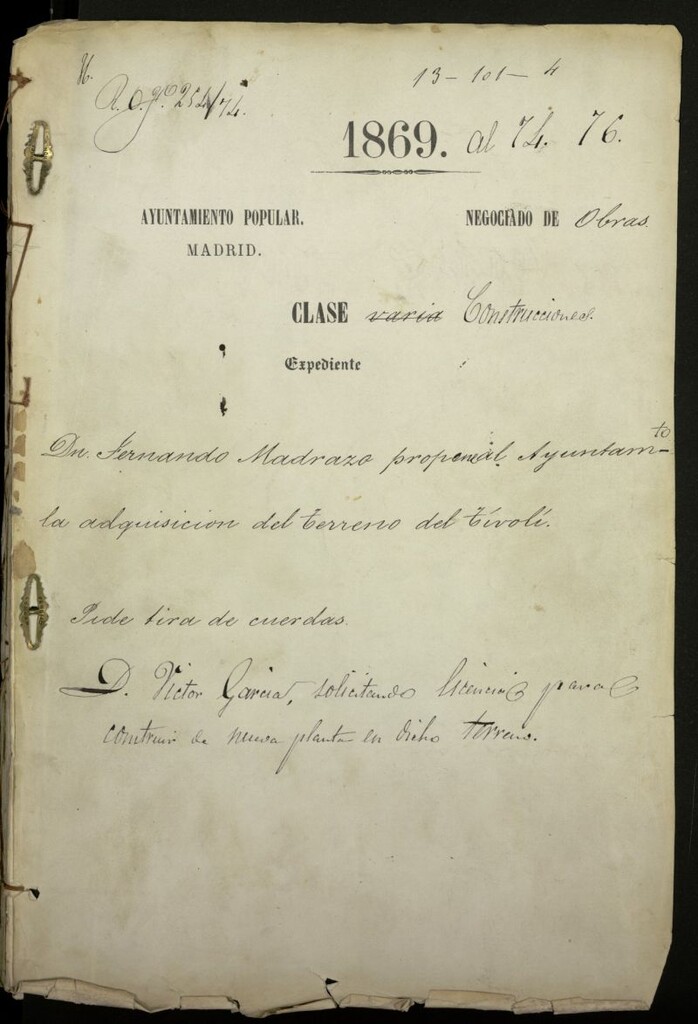 13-101-4
R. O. g.º 254/74.
1869. al 74. 76.
AYUNTAMIENTO POPULAR.
MADRID.
NEGOCIADO DE Obras
CLASE varia Construcciones.
Expediente
Dn. Fernando Madrazo propone al Ayuntamto
la adquisicion del terreno del Tívoli.
Pide tira de cuerdas.
D. Victor Garcia, solicitando licencia para
construir de nueva planta en dicho terreno.